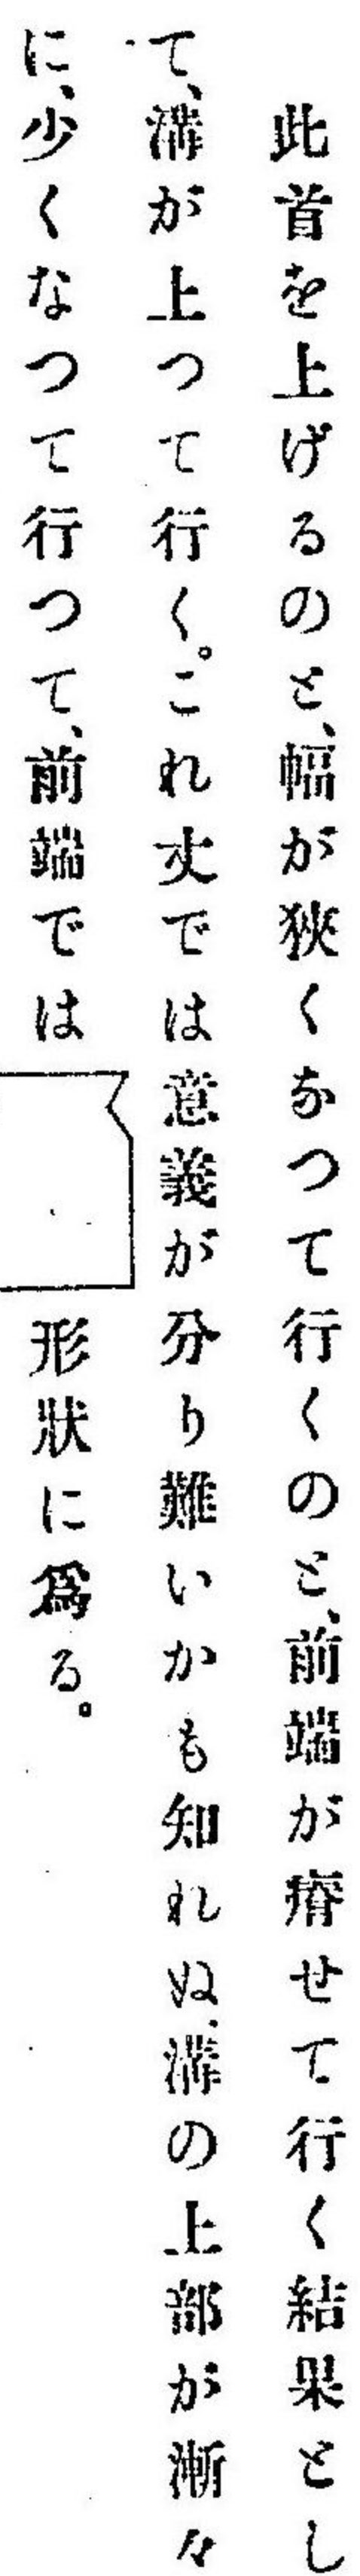 此首を上げるのと、幅が狹くなつて行くのと、前端が瘠せて行く結果とし
て、溝が上つて行く。これ丈では意義が分り難いかも知れぬ、溝の上部が漸々
に、少くなつて行つて、前端では形狀に爲る。